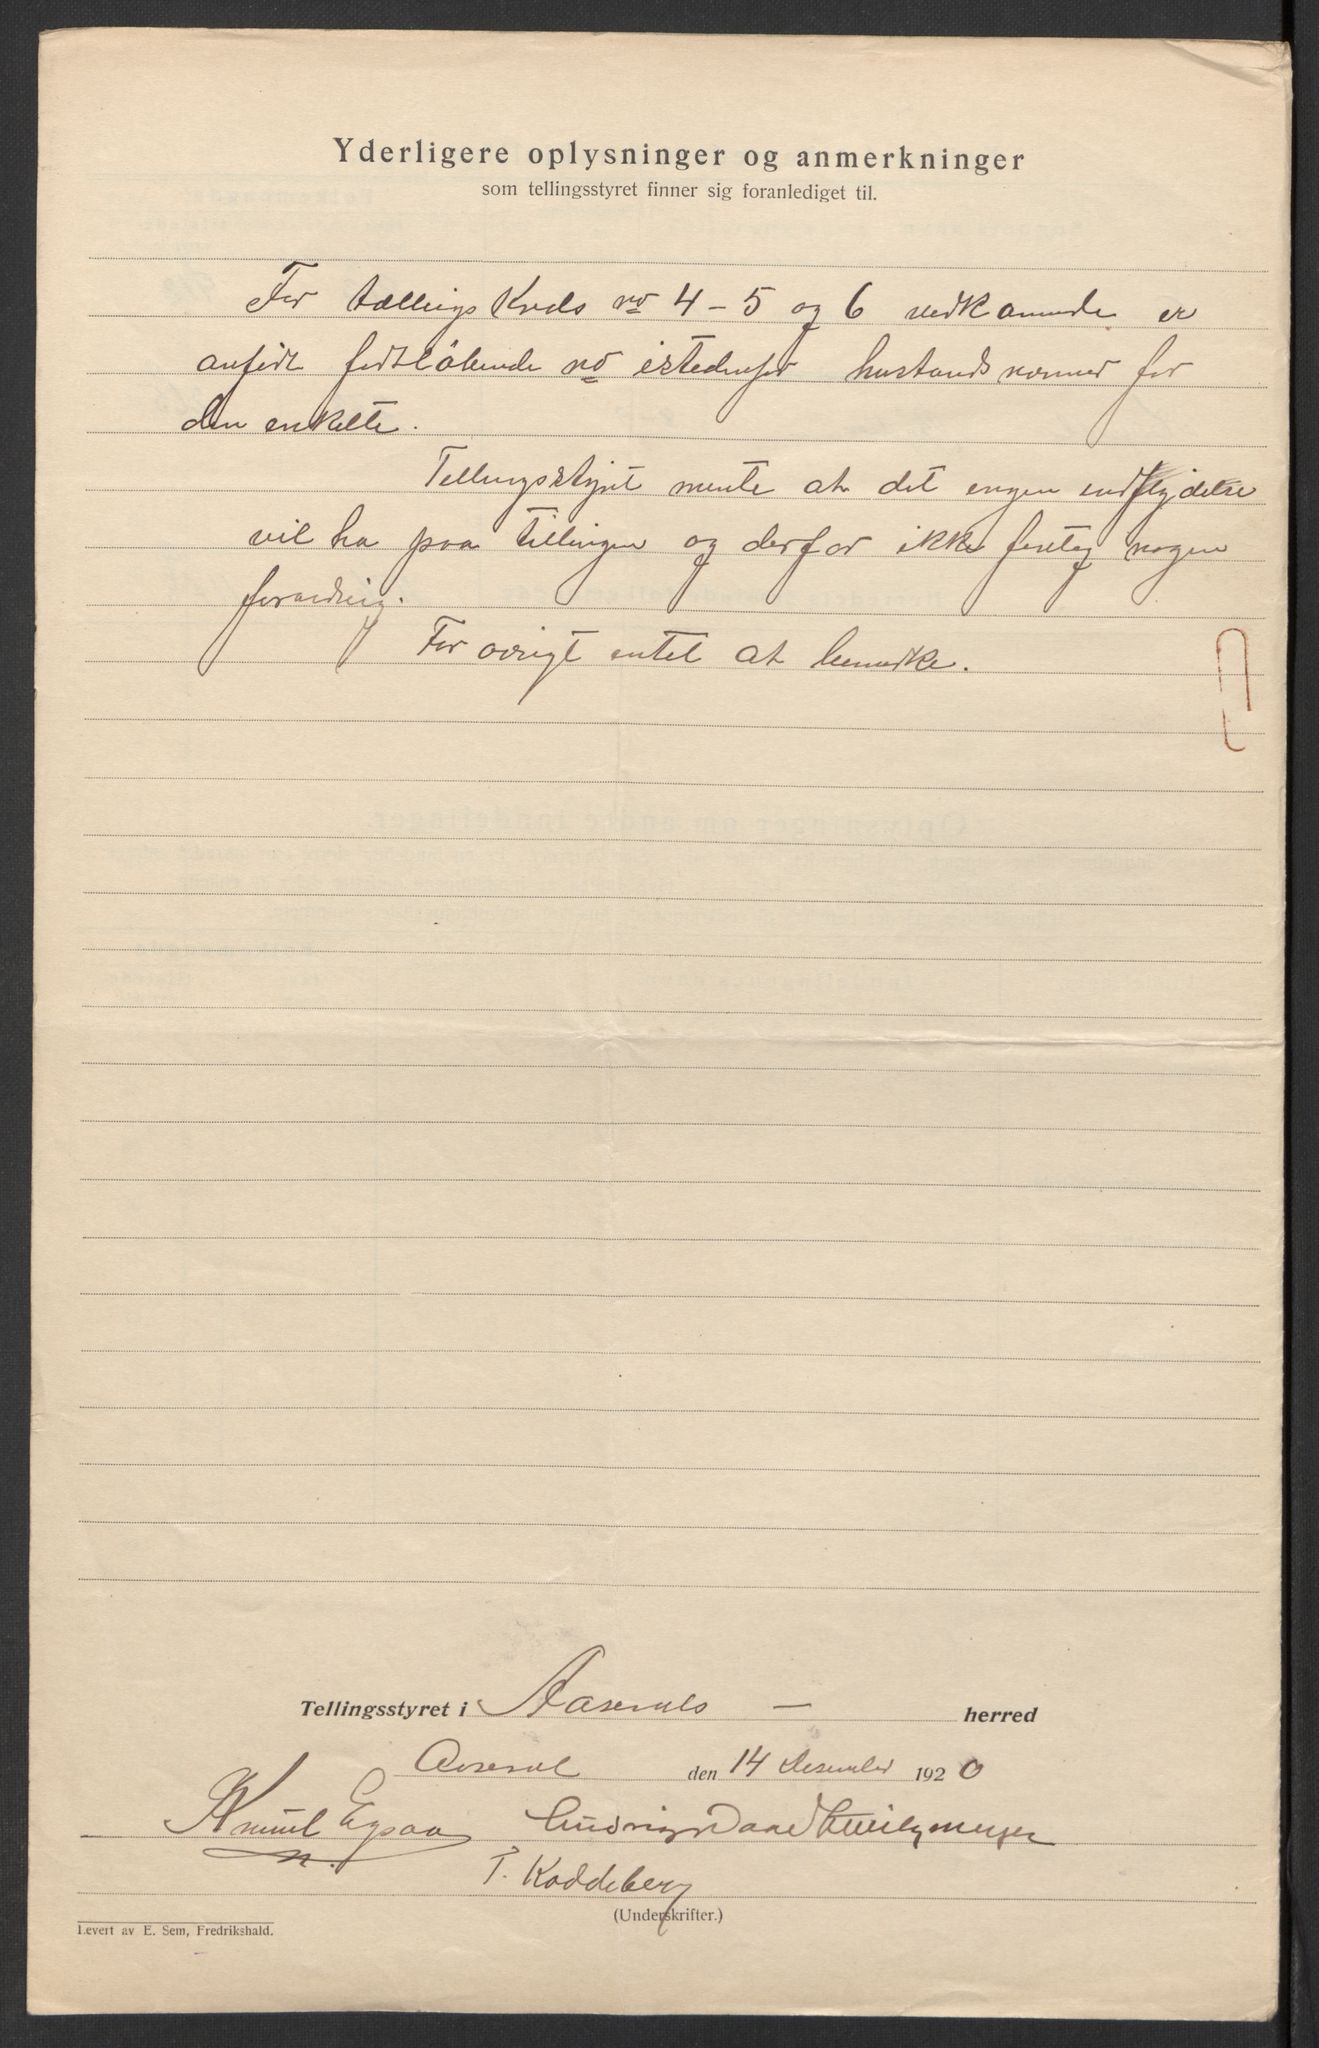 Yderligere oplysninger og anmerkninger
som tellingsstyret finner sig foranlediget til.
For tællings Kreds no 4 - 5 og 6 vedkomende er
anført fortløbende no istedenfor hustands for
den enkelte.
Tellingsstyret mente at det ingen indflydelse
vil ha paa tellingen og derfor ikke foretog nogen
forandring.
For øvrigt intet at bemerke.
Tellingsstyret i Aaseral - herred
Aaseral den 14 desember 1920
Knut
T. Koddeberg
(Underskrifter.)
Levert av E. Sem, Fredrikshald.